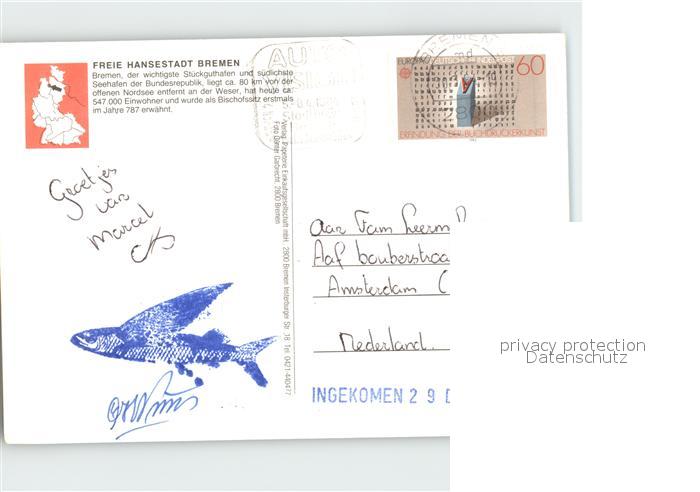 FREIE HANSESTADT BREMEN
Bremen, der wichtigste Stückguthafen und südlichste
Seehafen der Bundesrepublik, liegt ca. 80 km von der
offenen Nordsee entfernt an der Weser, hat heute ca.
547.000 Einwohner und wurde als Bischofssitz erstmals
im Jahre 787 erwähnt.
Groetjes
van
Marcel
Verlag: Papeterie Einkaufsgesellschaft mbH. 2800 Bremen Insterburger Str. 18 Tel. 0421-440477
Foto Günter Garbrecht, 2800 Bremen
AUTO
BREMEN
EUROPA DEUTSCHE BUNDESPOST
60
ERFINDUNG DER BUCHDRUCKERKUNST
Aan Fam
Amsterdam (
Nederland.
INGEKOMEN 2 9 D
privacy protection
Datenschutz